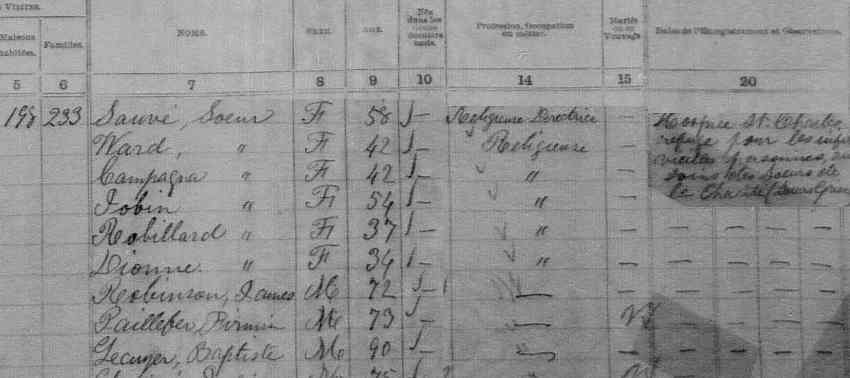 Visites.
Maisons habitées. Familles. NOMS. SEXE. AGE. Nés dans les derniers mois. Profession, Occupation ou métier. Mariés ou en Veuvage Dates de l'Enregistrement et Observations.
5 6 7 8 9 10 14 15 20
198 233 Sauvé, Soeur F 58 — Religieuse Directrice — Hospice St. Charles,
Ward, " F 42 — Religieuse — refuge pour les
Campagna " F 42 — " — personnes,
Jobin " F 54 — " — soins des Soeurs de
la Charité (Soeurs
Robillard " F 37 — " — — — — — —
Dionne " F 34 — " — — — — — —
Robinson, James M 72 — — — — — — — —
Paillefer, Firmin M 73 — — V — — — — —
Lecuyer, Baptiste M 90 — — — — — — — —